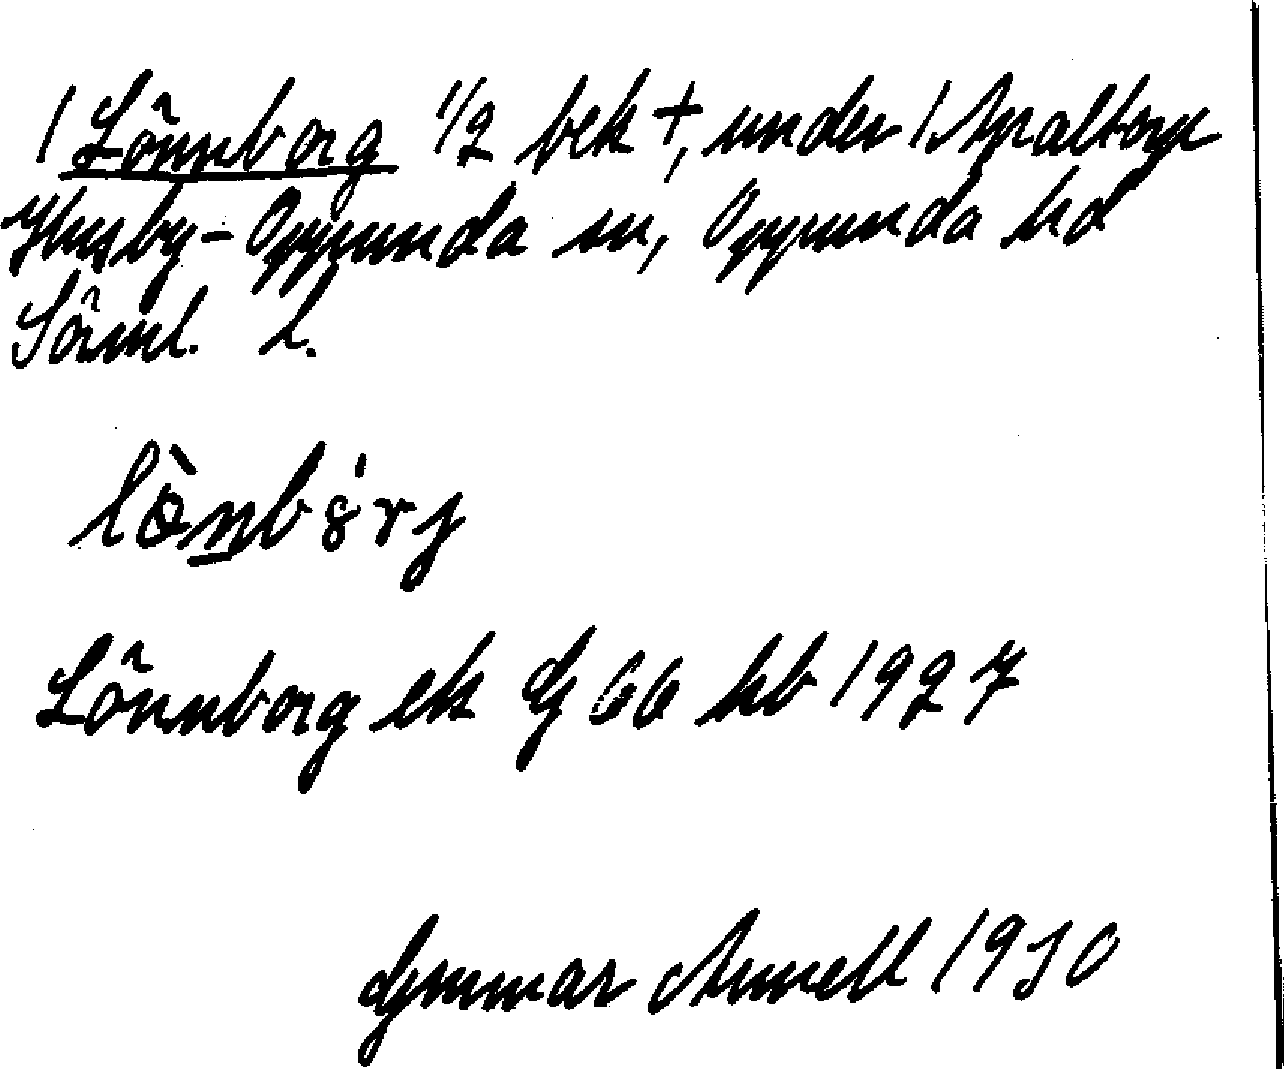 1 Lönnborg 1/2 bek †, under 1 Apaltorp
Husby-Oppunda sn, Oppunda hd
Sörml. l.
lönbȯrj
Lönnborg ek G 66 hb 1927
Gunnar Arnell 1930